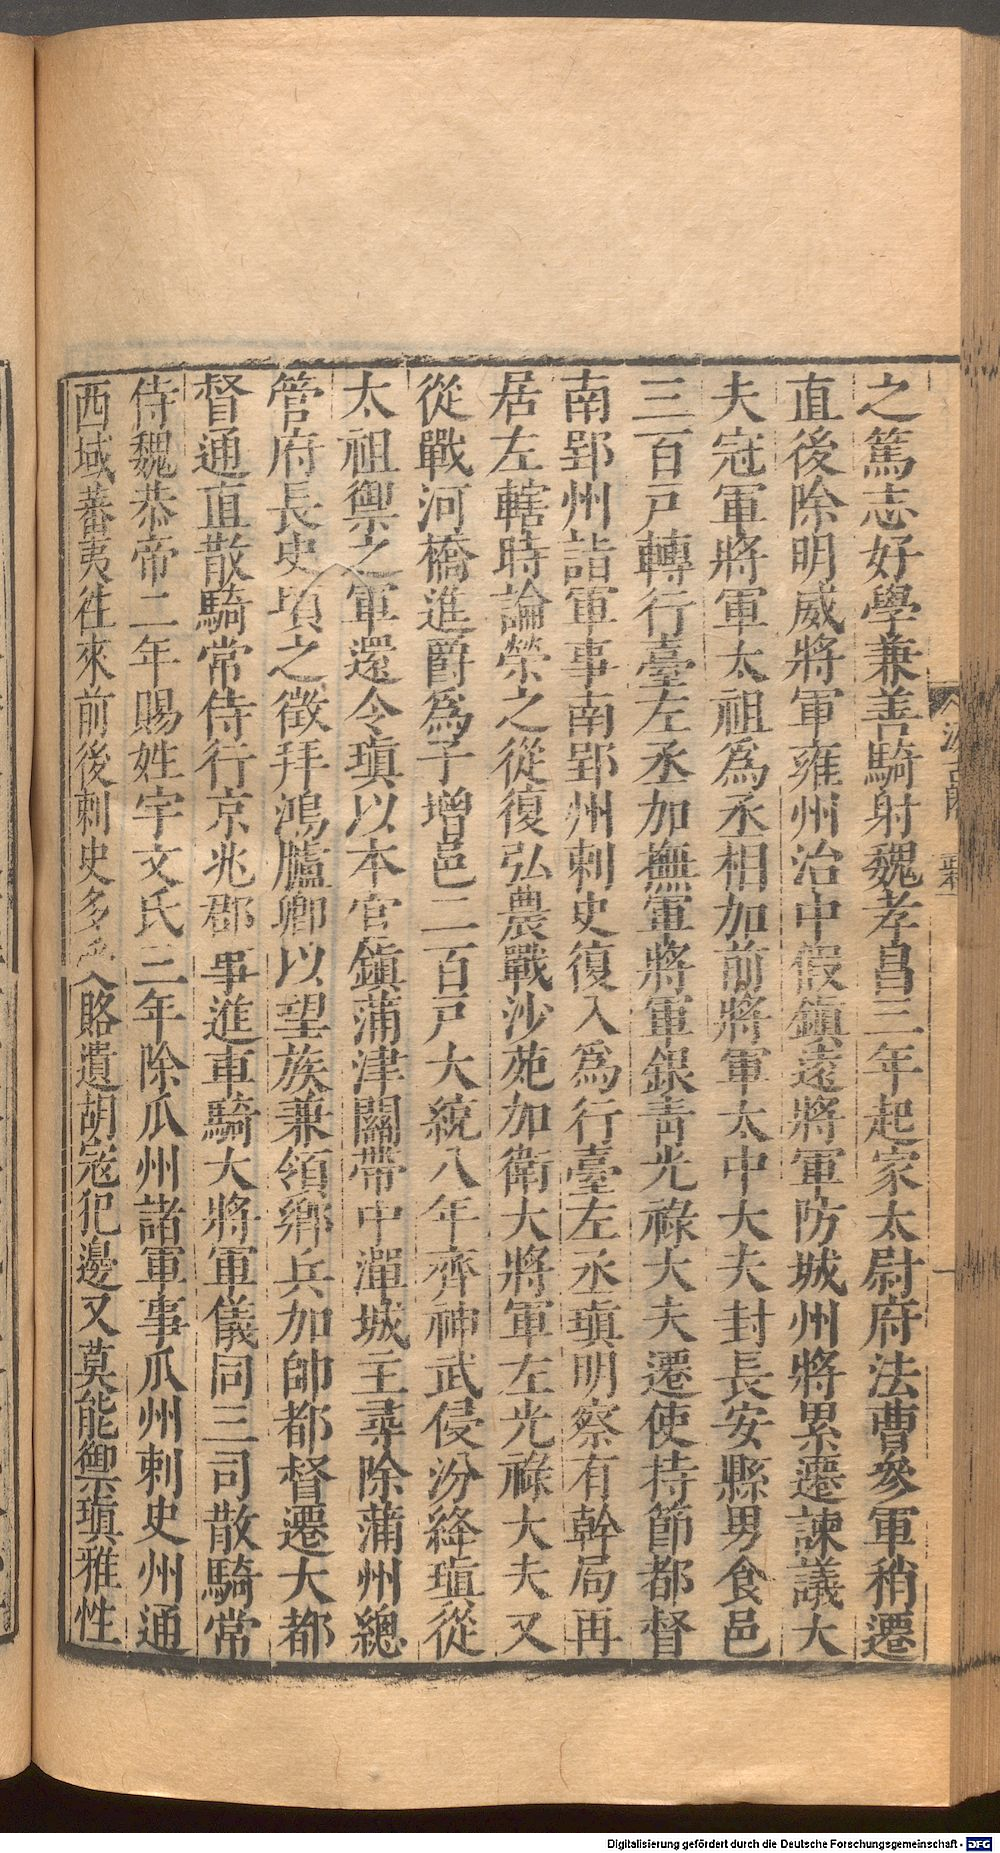 之篤志好學兼善騎射魏孝昌三年起家太尉府法曹參軍稍遷
直後除明威將軍雍州治中假鎮遠將軍防城州將累遷諫議大
夫冠軍將軍太祖為丞相加前將軍太中大夫封長安縣男食邑
三百戶轉行臺左丞加撫軍將軍銀青光祿大夫遷使持節都督
南郢州諸軍事南郢州刺史復入為行臺左丞瑱明察有幹局再
居左轄時論榮之從復弘農戰沙苑加衛大將軍左光祿大夫又
從戰河橋進爵為子增邑二百戶大統八年齊神武侵汾絳瑱從
太祖禦之軍還令瑱以本官鎮蒲津關帶中潬城主尋除蒲州總
管府長史頃之徵拜鴻臚卿以望族兼領鄉兵加帥都督遷大都
督通直散騎常侍行京兆郡事進車騎大將軍儀同三司散騎常
侍魏恭帝二年賜姓宇文氏三年除瓜州諸軍事瓜州刺史州通
西域蕃夷往來前後刺史多受賂遺胡寇犯邊又莫能禦瑱雅性
汲古閣
Digitalisierung gefördert durch die Deutsche Forschungsgemeinschaft - DFG